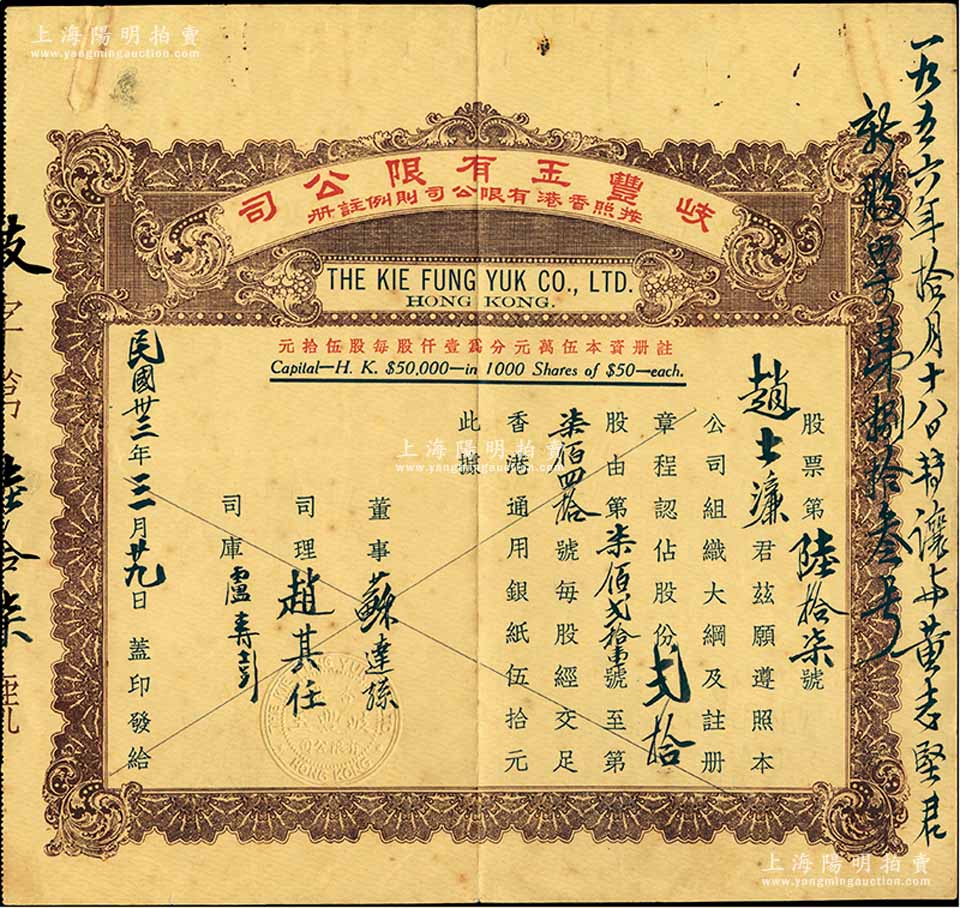 上海陽明拍賣
www.yangmingauction.com
上海陽明拍賣
www.yangmingauction.com
一九五六年拾月十八日轉讓與黃志堅君
新股票第捌拾叁号
岐豐玉有限公司
按照香港有限公司則例註册
THE KIE FUNG YUK CO., LTD.
HONG KONG.
註册資本伍萬元分爲壹仟股每股伍拾元
Capital—H. K. $50,000—in 1000 Shares of $50—each.
股票第陸拾柒號
趙士濂君茲願遵照本
公司組織大綱及註册
章程認佔股份弍拾
股由第柒佰弍拾壹號至第
柒佰四拾號每股經交足
香港通用銀紙伍拾元
此據
董事蘇達
司理趙其任
司庫盧壽
民國卅三年三月廿九日蓋印發給
HONG KONG
陸拾柒
上海陽明拍賣
www.yangmingauction.com
上海陽明拍賣
www.yangmingauction.com